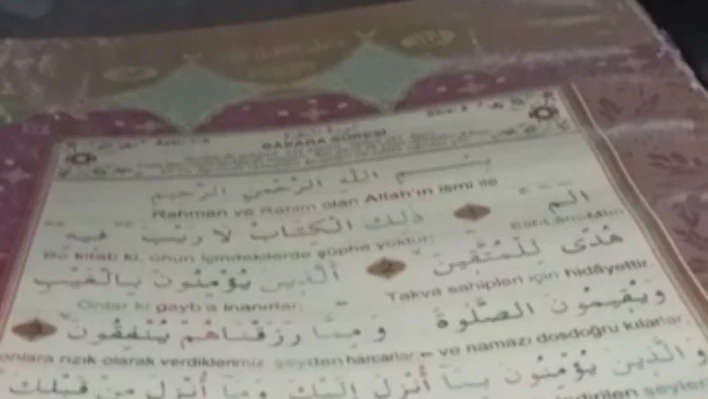 BAKARA SÛRESİ
بِسْمِ اللهِ الرَّحْمٰنِ الرَّحِيمِ
Rahman ve Rahim olan Allah'ın ismi ile
الم ذٰلِكَ الْكِتَابُ لَا رَيْبَ فِيهِ
Elif-Lâm-Mîm Bu kitab ki, onun içindekilerde şüphe yoktur;
هُدًى لِلْمُتَّقِينَ الَّذِينَ يُؤْمِنُونَ بِالْغَيْبِ
Takva sahipleri için hidâyettir. Onlar ki gayb'a inanırlar;
وَيُقِيمُونَ الصَّلٰوةَ وَمِمَّا رَزَقْنَاهُمْ يُنْفِقُونَ
ve namazı dosdoğru kılarlar onlara rızık olarak verdiklerimiz şeyden harcarlar
وَالَّذِينَ يُؤْمِنُونَ بِمَا أُنْزِلَ إِلَيْكَ وَمَا أُنْزِلَ مِنْ قَبْلِكَ
indirilen şeyler